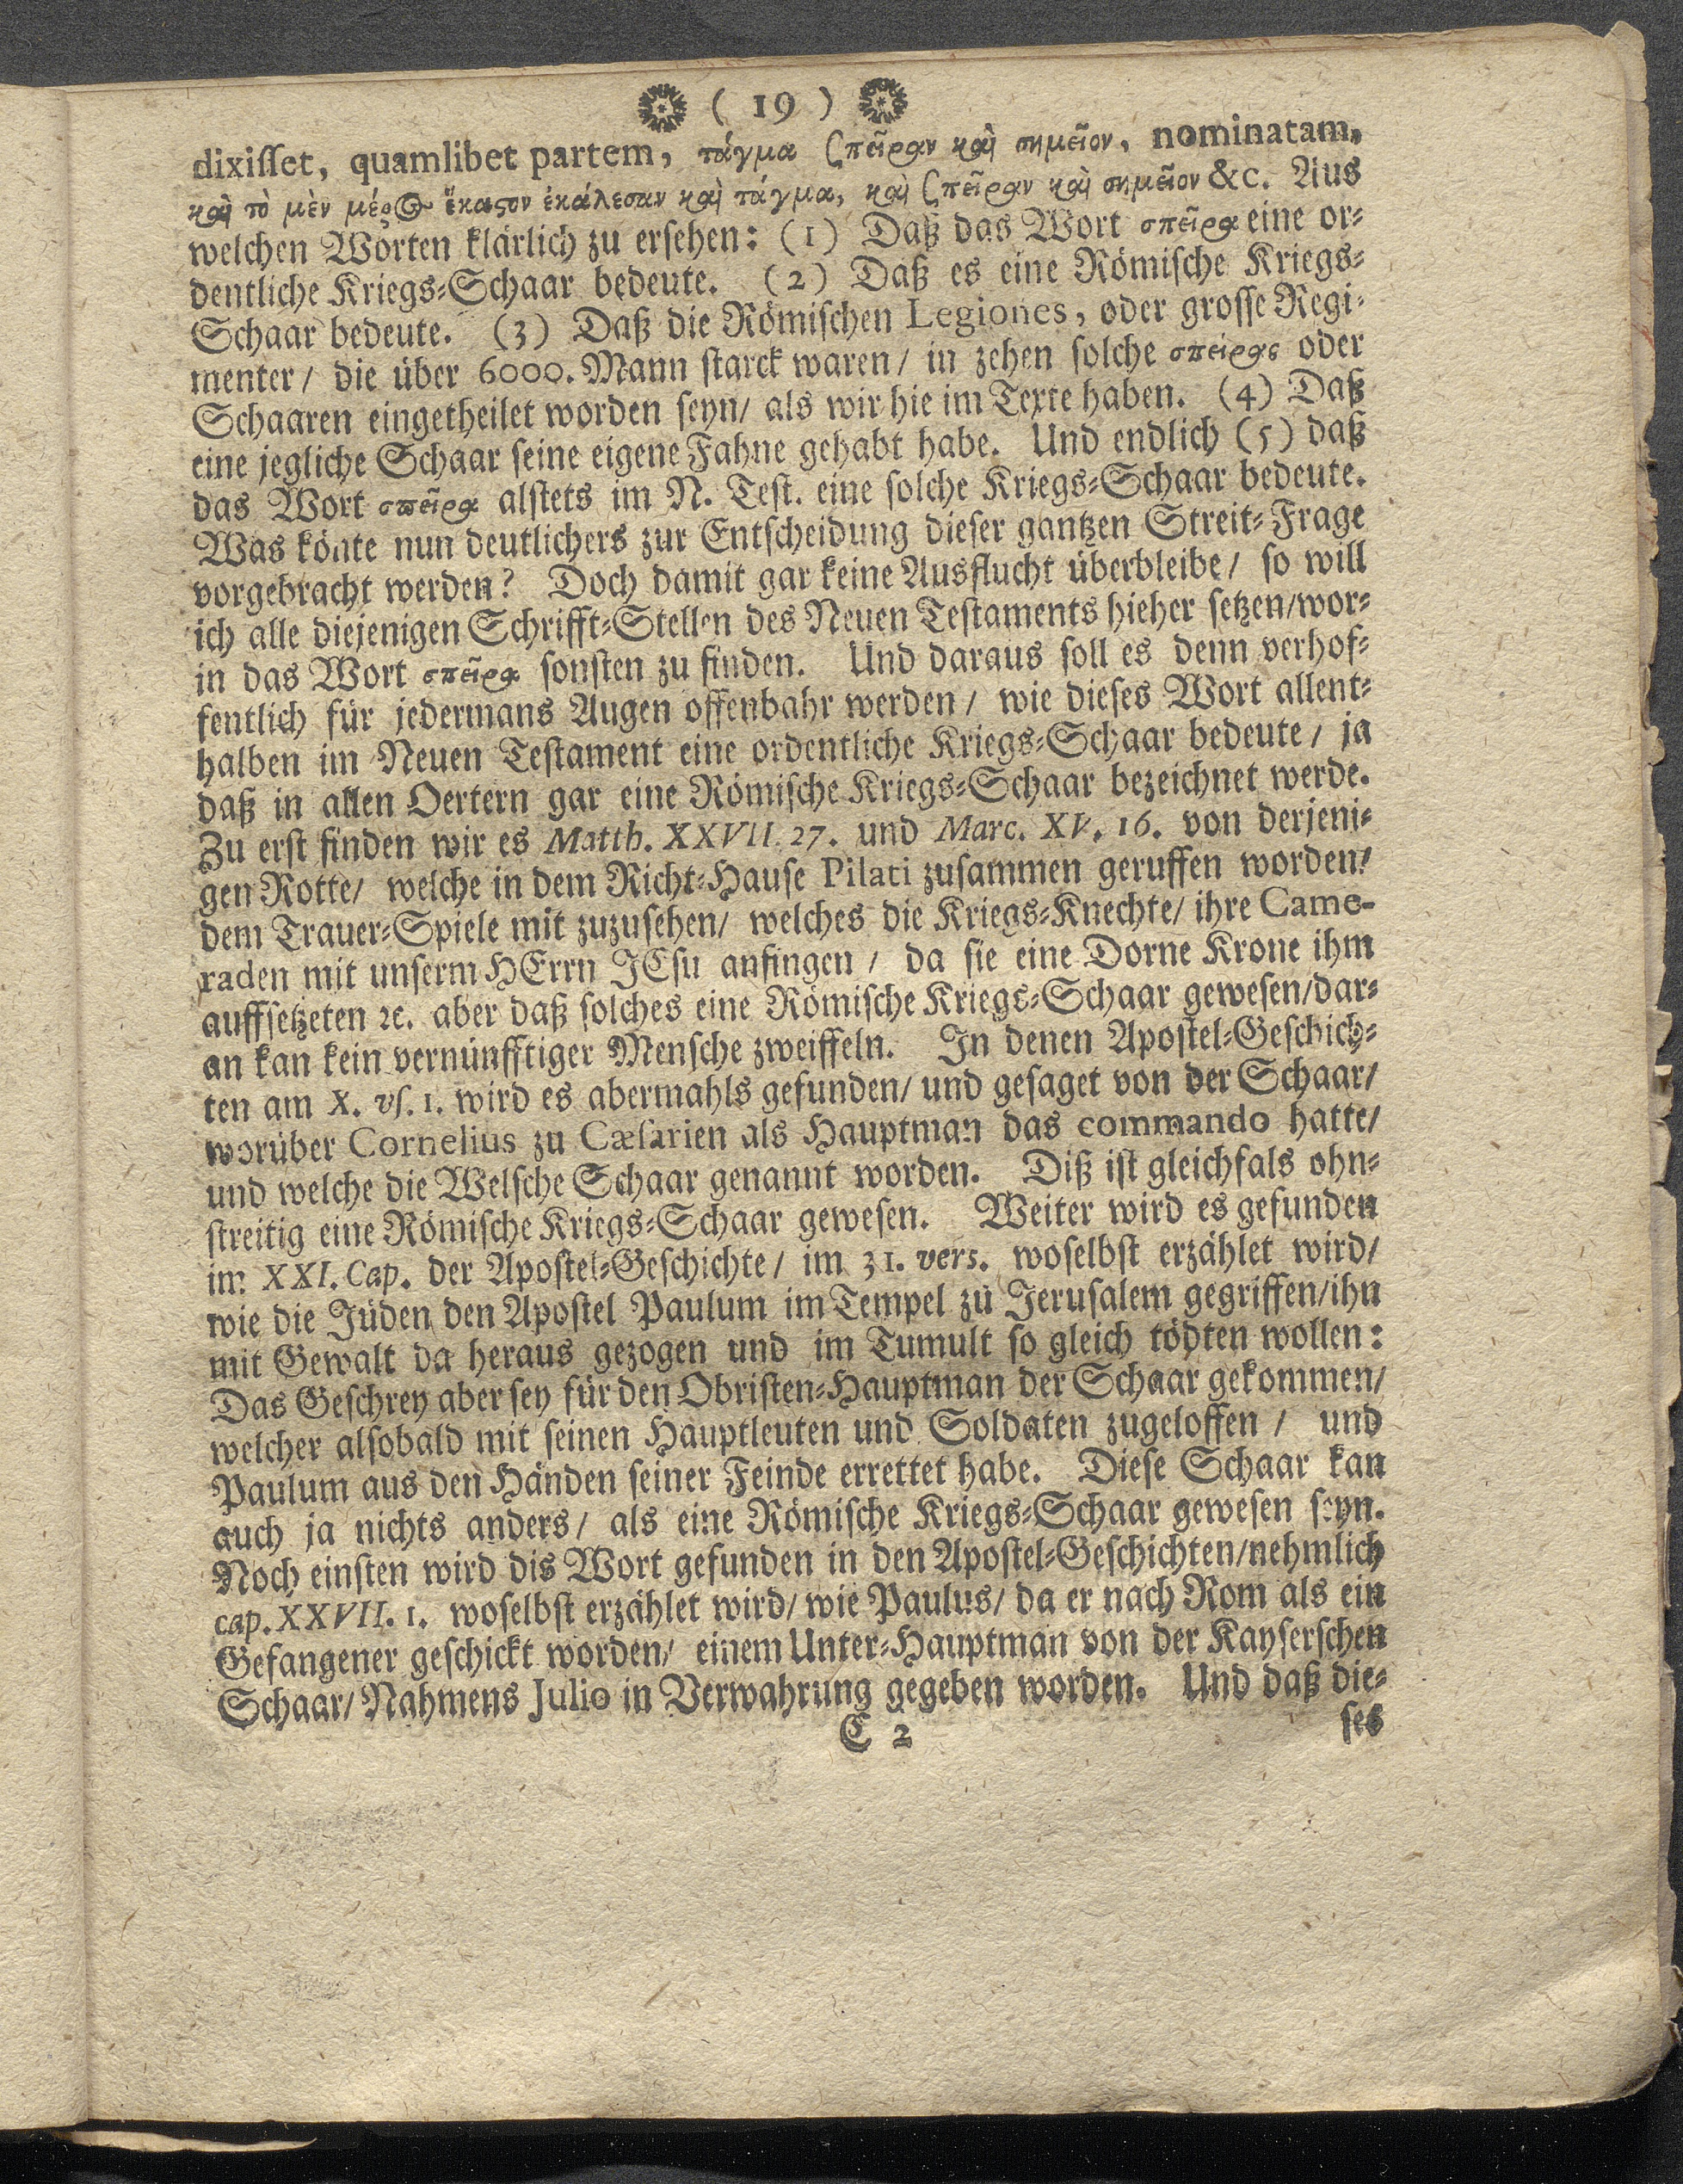 ( 19 )
dixisset, quamlibet partem, τάγμα ϛπεῖραν καὶ σημεῖον, nominatam,
καὶ τὸ μὲν μέρος ἕκαϛον ἐκάλεσαν καὶ τάγμα, καὶ ϛπεῖραν καὶ σημεῖον &c. Aus
welchen Worten klärlich zu ersehen: (1) Daß das Wort σπεῖρα eine or-
dentliche Kriegs-Schaar bedeute. (2) Daß es eine Römische Kriegs-
Schaar bedeute. (3) Daß die Römischen Legiones, oder grosse Regi-
menter/ die über 6000. Mann starck waren/ in zehen solche σπείρας oder
Schaaren eingetheilet worden seyn/ als wir hie im Texte haben. (4) Daß
eine jegliche Schaar seine eigene Fahne gehabt habe. Und endlich (5) daß
das Wort σπεῖρα alstets im N. Test. eine solche Kriegs-Schaar bedeute.
Was könte nun deutlichers zur Entscheidung dieser gantzen Streit-Frage
vorgebracht werden? Doch damit gar keine Ausflucht überbleibe/ so will
ich alle diejenigen Schrifft-Stellen des Neuen Testaments hieher setzen/wor-
in das Wort σπεῖρα sonsten zu finden. Und daraus soll es denn verhof-
fentlich für jedermans Augen offenbahr werden/ wie dieses Wort allent-
halben im Neuen Testament eine ordentliche Kriegs-Schaar bedeute/ ja
daß in allen Oertern gar eine Römische Kriegs-Schaar bezeichnet werde.
Zu erst finden wir es Matth. XXVII. 27. und Marc. XV. 16. von derjeni-
gen Rotte/ welche in dem Richt-Hause Pilati zusammen geruffen worden/
dem Trauer-Spiele mit zuzusehen/ welches die Kriegs-Knechte/ ihre Came-
raden mit unserm HErrn JEsu anfingen/ da sie eine Dorne Krone ihm
auffsetzeten ꝛc. aber daß solches eine Römische Kriegs-Schaar gewesen/dar-
an kan kein vernünfftiger Mensche zweiffeln. In denen Apostel-Geschich-
ten am X. vs. 1. wird es abermahls gefunden/ und gesaget von der Schaar/
worüber Cornelius zu Cæsarien als Hauptman das commando hatte/
und welche die Welsche Schaar genannt worden. Diß ist gleichfals ohn-
streitig eine Römische Kriegs-Schaar gewesen. Weiter wird es gefunden
im XXI. Cap. der Apostel-Geschichte/ im 31. vers. woselbst erzählet wird/
wie die Jüden den Apostel Paulum im Tempel zu Jerusalem gegriffen/ihn
mit Gewalt da heraus gezogen und im Tumult so gleich tödten wollen:
Das Geschrey aber sey für den Obristen-Hauptman der Schaar gekommen/
welcher alsobald mit seinen Hauptleuten und Soldaten zugeloffen/ und
Paulum aus den Händen seiner Feinde errettet habe. Diese Schaar kan
auch ja nichts anders/ als eine Römische Kriegs-Schaar gewesen seyn.
Noch einsten wird dis Wort gefunden in den Apostel-Geschichten/nehmlich
cap. XXVII. 1. woselbst erzählet wird/ wie Paulus/ da er nach Rom als ein
Gefangener geschickt worden/ einem Unter-Hauptman von der Kayserschen
Schaar/ Nahmens Julio in Verwahrung gegeben worden. Und daß die-
C 2 ses